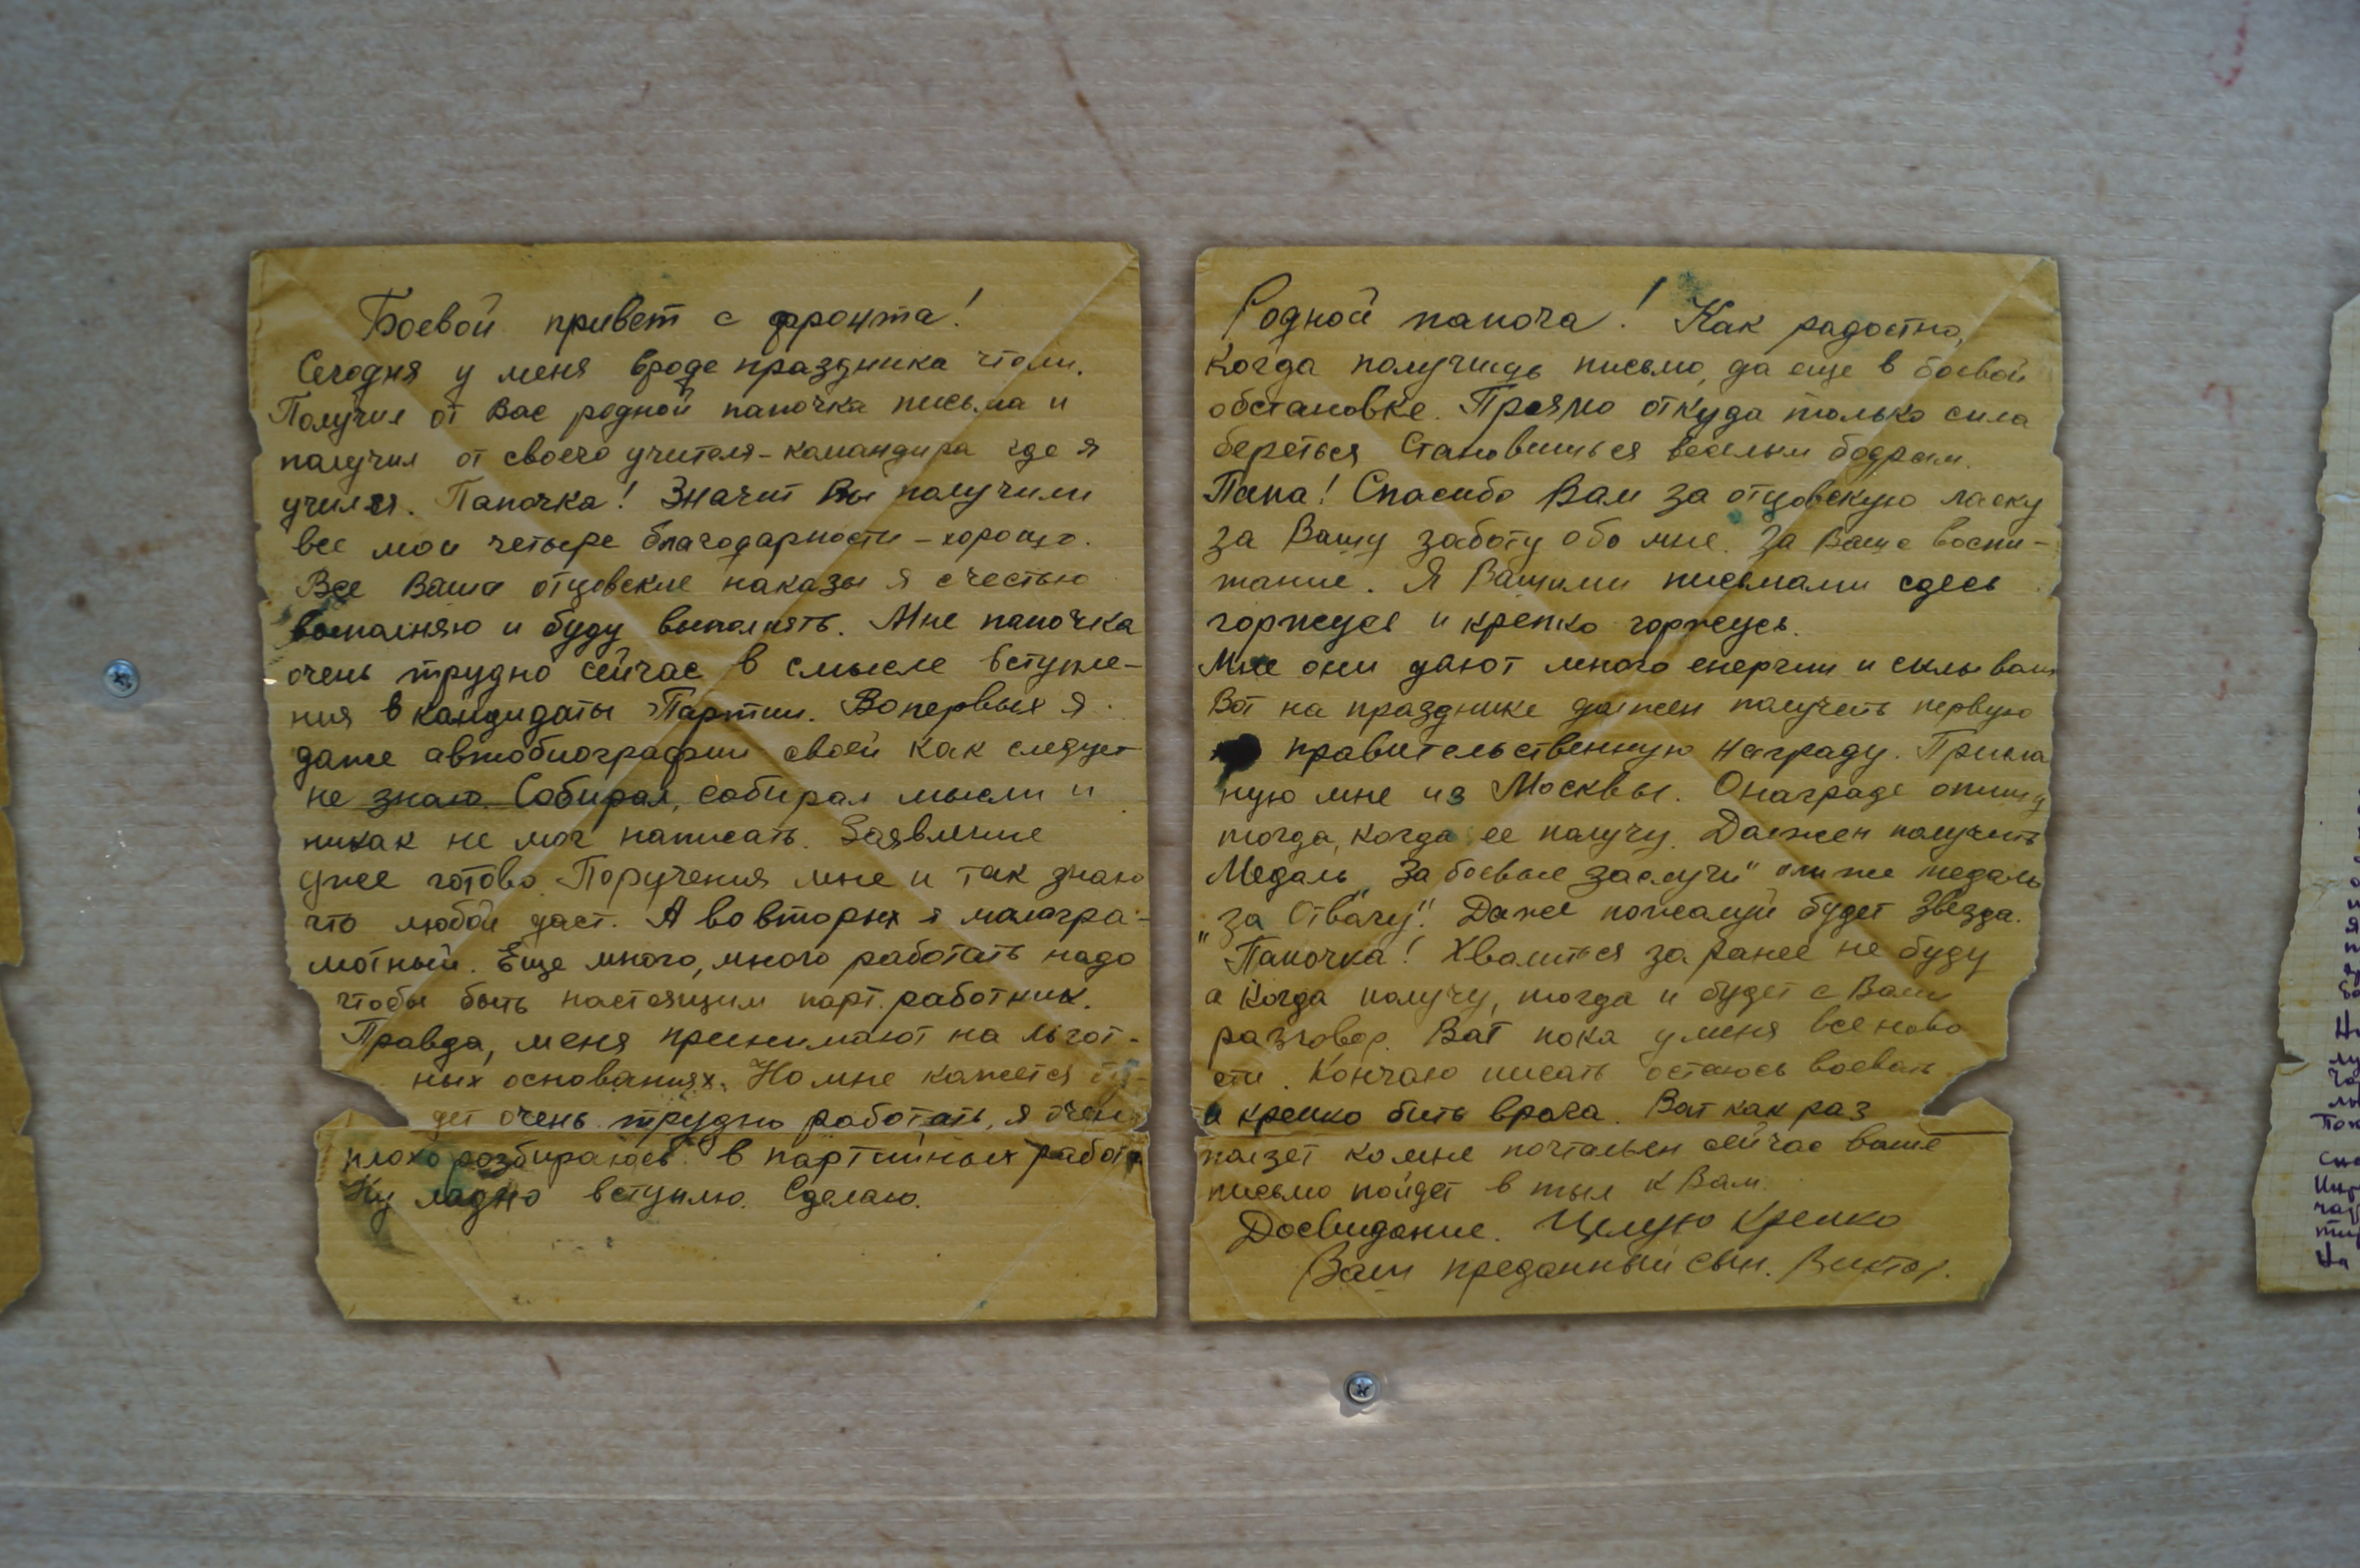 Боевой привет с фронта!
Сегодня у меня вроде праздника чтоли.
Получил от Вас родной папочка письма и
получил от своего учителя-командира где я
учился. Папочка! Значит Вы получили
все мои четыре благодарности - хорошо.
Все Ваши отцовские наказы я с честью
выполняю и буду выполнять. Мне папочка
очень трудно сейчас в смысле вступле-
ния в кандидаты Партии. Вопервых я
даже автобиографии своей как следует
не знаю. Собирал, собирал мысли и
никак не мог написать. Заявление
уже готово. Поручения мне и так знаю
что любой даст. А вовторых я малогра-
мотный. Еще много, много работать надо
чтобы быть настоящим парт. работник.
Правда, меня принимают на льгот-
ных основаниях. Но мне кажется
дет очень трудно работать, я очень
плохо разбираюсь в партийных работ
Ну ладно вступлю. Сделаю.
Родной папоча! Как радостно,
когда получишь письмо, да еще в боевой
обстановке. Прямо откуда только сила
береться Становишься веселым бодрым.
Папа! Спасибо Вам за отцовскую ласку
за Вашу заботу обо мне. За Ваше воспи-
тание. Я Вашими письмами сдесь
горжусь и крепко горжусь.
Мне они дают много енергии и силы
Вот на празднике должен получить первую
правительственную награду. Присла
ную мне из Москвы. Онаграде опишу
тогда, когда ее получу. Должен получить
Медаль „За боевые заслуги" или же медаль
„за Отвагу". Даже пожалуй будет Звезда.
Папочка! Хвалиться за ранее не буду
а когда получу, тогда и будет с Вами
разговор. Вот пока у меня все ново
сти. Кончаю писать остаюсь воевать
и крепко бить врага. Вот как раз
ползет ко мне почтальен сейчас ваше
письмо пойдет в тыл к Вам.
Досвидание. Целую крепко
Ваш преданный сын. Виктор.